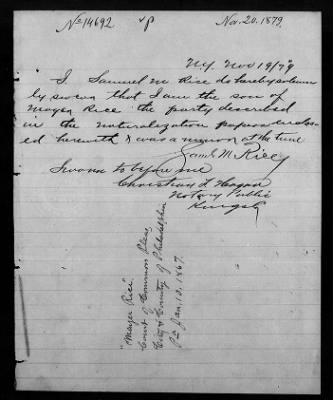 No 14692
Nov. 20. 1879.
N.Y. Nov 19/79
I Samuel M Rice do hereby solemn
ly swear that I am the son of
Mayer Rice the party described
in the naturalization papers enclos
ed herewith & was a minor at the time
Saml M Rice
Sworn to before me
Christian L Hagan
Notary Public
Kings Co
"Mayer Rice"
Court of Common Pleas
City & County of Philadelphia
Pa Jan. 10, 1867.